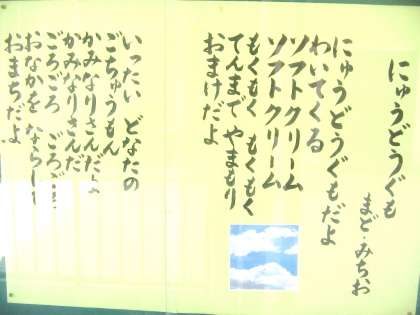 にゅうどうぐも
まど・みちお
にゅうどうぐもだよ
わいてくる
ソフトクリーム
ソフトクリーム
もくもく もくもく
てんまで やまもり
おまけだよ
いったい どなたの
ごちゅうもん
かみなりさんだよ
かみなりさんだ
ごろごろ ごろごろ
おなかを ならして
おまちだよ